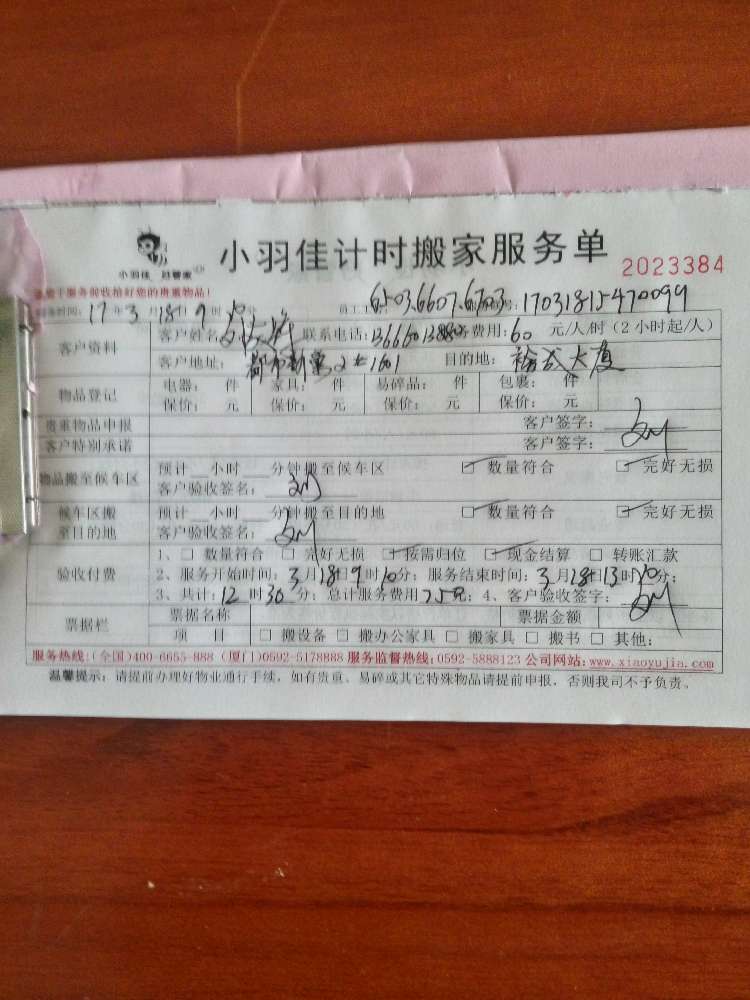 小羽佳 计时搬家服务单
小羽佳计时搬家服务单
2023384
服务前收拾好您的贵重物品！
服务时间：17年3月18日9时 员工工号：6503.6607.6703 编号：17031815470099
客户资料 客户姓名： 联系电话： 服务费用：60元/人/时（2小时起/人）
客户地址： 1601 目的地： 大厦
物品登记 电器： 件 家具： 件 易碎品： 件 包裹： 件
保价： 元 保价： 元 保价： 元 保价： 元
贵重物品申报 客户签字：
客户特别承诺 客户签字：刘
物品搬至候车区 预计__小时__分钟搬至候车区 数量符合 完好无损
客户验收签名：刘
候车区搬至目的地 预计__小时__分钟搬至目的地 数量符合 完好无损
客户验收签名：刘
验收付费 1、 数量符合 完好无损 按需归位 现金结算 转账汇款
2、服务开始时间：3月18日9时10分；服务结束时间：3月18日13时20分；
3、共计：12时30分；总计服务费用750元；4、客户验收签字：刘
票据栏 票据名称 票据金额
项 目 搬设备 搬办公家具 搬家具 搬书 其他：
服务热线：(全国)400-6655-888 (厦门)0592-5178888 服务监督热线：0592-5888123 公司网站：www.xiaoyujia.com
温馨提示：请提前办理好物业通行手续，如有贵重、易碎或其它特殊物品请提前申报，否则我司不予负责。